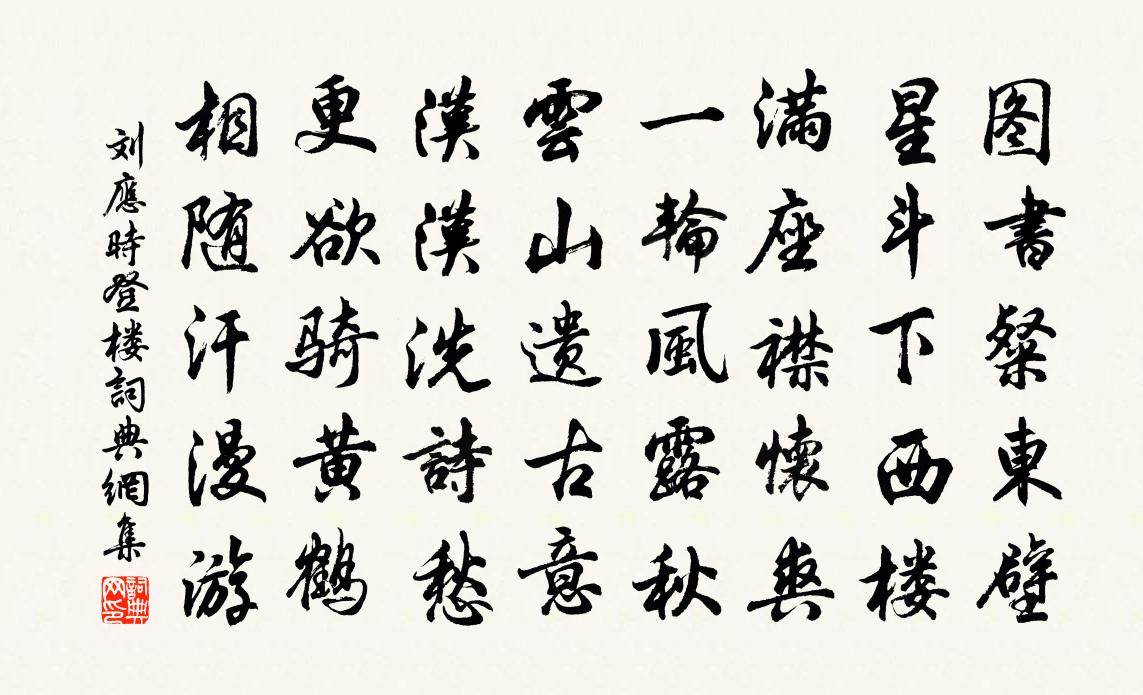 图書粲東壁
星斗下西楼
滿座襟懷爽
一輪風露秋
雲山遗古意
漠漠洗詩愁
更欲骑黄鹤
相随汗漫游
刘應時登楼詞典網集
詞典网印